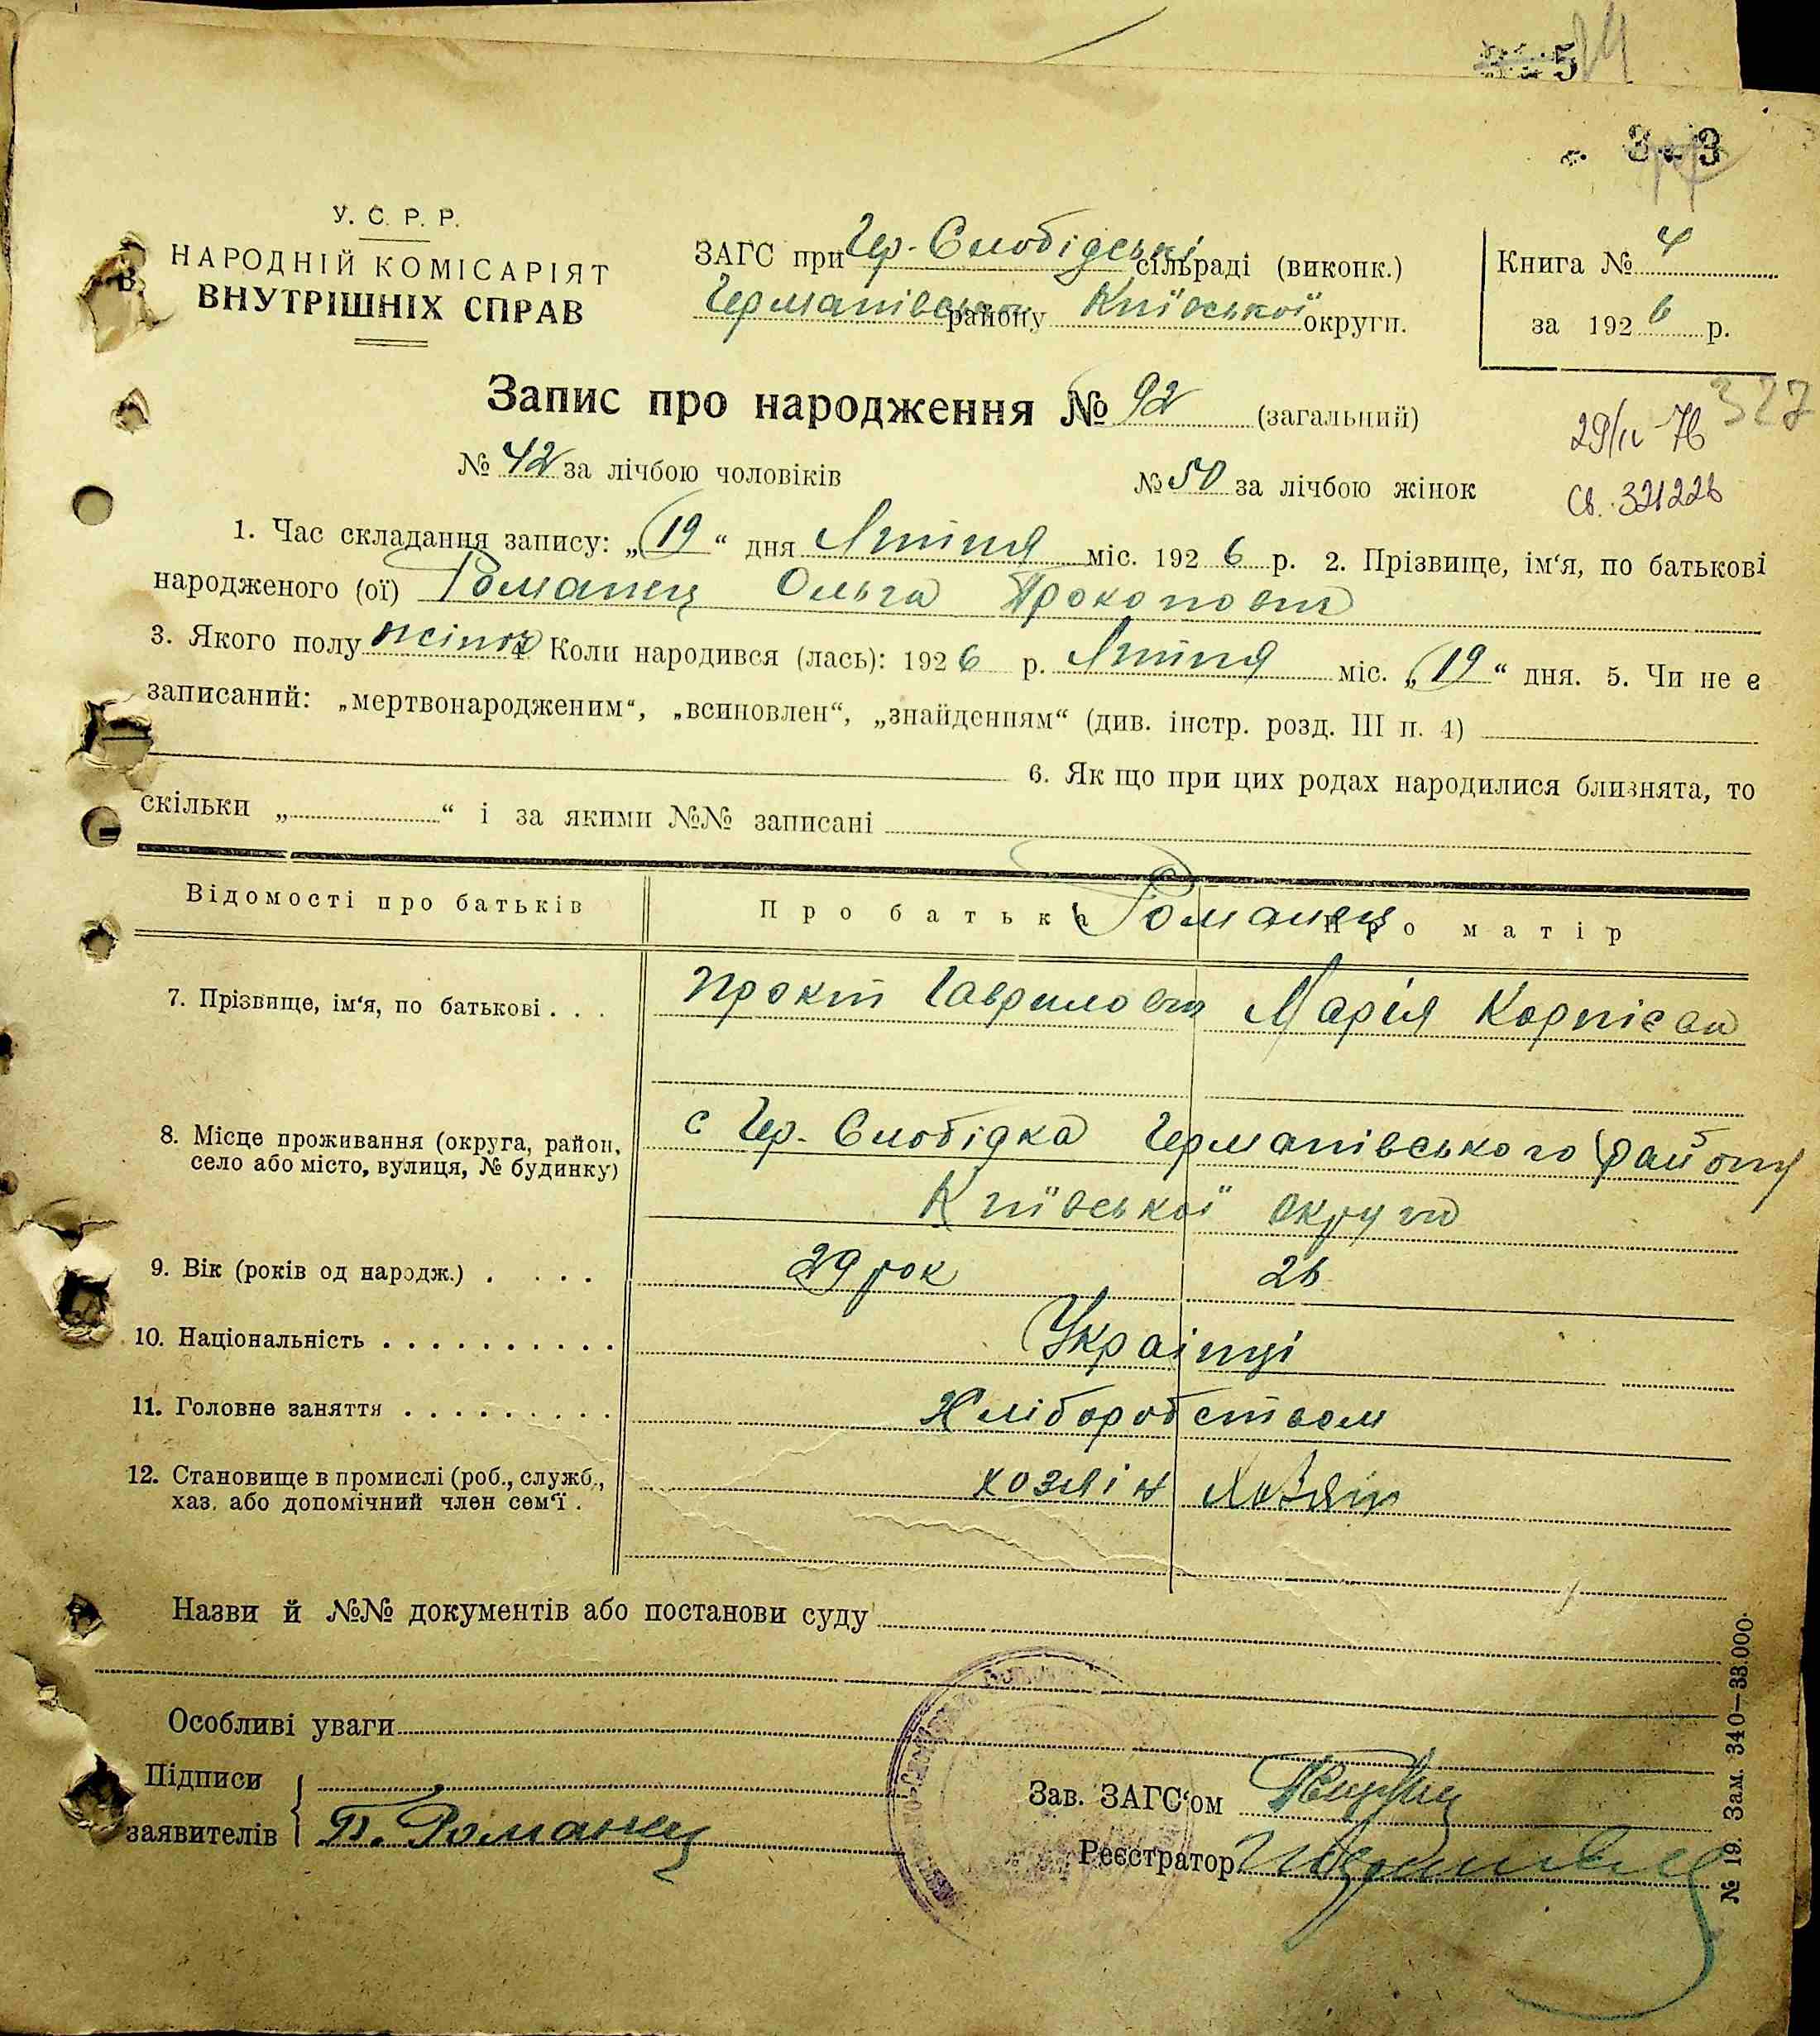 5
24
3
3
У. С. Р. Р.
НАРОДНІЙ КОМІСАРІЯТ
ВНУТРІШНІХ СПРАВ
ЗАГС при Гер-Слобідській сільраді (виконк.)
Германівськ району Київської округи.
Книга № 4
за 1926 р.
Запис про народження № 92 (загальний)
327
29/IV 76
№ 42 за лічбою чоловіків № 50 за лічбою жінок
Св. 321226
1. Час складання запису: „19“ дня Липня міс. 1926 р. 2. Прізвище, ім‘я, по батькові
народженого (ої) Романец Ольга Прокопова
3. Якого полу жіноч 4. Коли народився (лась): 1926 р. Липня міс. „19“ дня. 5. Чи не є
записаний: „мертвонародженим“, „всиновлен“, „знайденням“ (див. інстр. розд. III п. 4)
6. Як що при цих родах народилися близнята, то
скільки „ “ і за якими №№ записані
Відомості про батьків Про батька Про матір
Романец
7. Прізвище, ім‘я, по батькові . . . Прокіп Гаврилови Марія Корнієва
8. Місце проживання (округа, район, село або місто, вулиця, № будинку) с Гер-Слобідка Германівського району
Київської округи
9. Вік (років од народж.) . . . . 29 рок 26
10. Національність . . . . . . . . . . Українці
11. Головне заняття . . . . . . . . . Хліборобством
12. Становище в промислі (роб., служб., хаз. або допомічний член сем‘ї . хозяін Хозяін
Назви й №№ документів або постанови суду
Особливі уваги
Підписи
заявителів П. Романец
Зав. ЗАГС‘ом
Реєстратор
№ 19. Зам. 340—33.000.